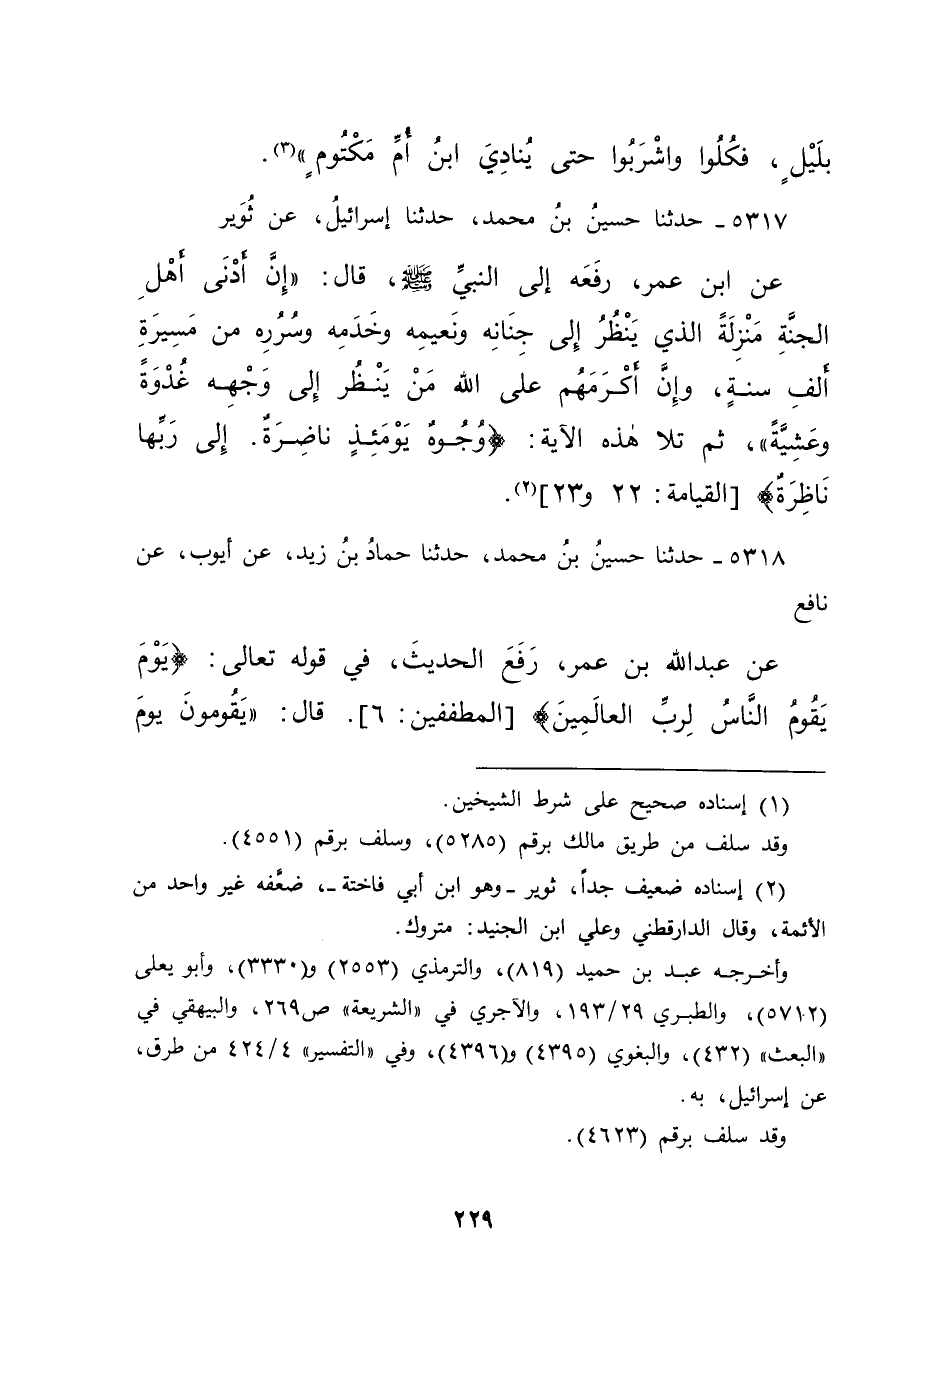 بلَيْلٍ، فكُلُوا واشْرَبُوا حتى يُنادِيَ ابنُ أُمِّ مَكْتُومٍ»(٣).
٥٣١٧ ـ حدثنا حسينُ بنُ محمد، حدثنا إسرائيلُ، عن ثُوَير
عن ابن عمر، رفَعَه إلى النبيِّ ﷺ، قال: «إِنَّ أَدْنَى أَهْلِ
الجنَّةِ مَنْزِلَةً الذي يَنْظُرُ إلى جِنَانِه ونَعيمِه وخَدَمِه وسُرُرِه من مَسِيرَةِ
أَلفِ سنةٍ، وإِنَّ أَكْرَمَهُم على الله مَنْ يَنْظُر إِلى وَجْهِه غُدْوَةً
وعَشِيَّةً»، ثم تلا هٰذه الآية: ﴿وُجُوهٌ يَوْمَئِذٍ ناضِرَةٌ. إِلى رَبِّها
نَاظِرَةٌ﴾ [القيامة: ٢٢ و٢٣](٢).
٥٣١٨ ـ حدثنا حسينُ بنُ محمد، حدثنا حمادُ بنُ زيد، عن أيوب، عن
نافع
عن عبدالله بن عمر، رَفَعَ الحديثَ، في قوله تعالى: ﴿يَوْمَ
يَقُومُ النَّاسُ لِربِّ العالَمِينَ﴾ [المطففين: ٦]. قال: «يَقُومونَ يومَ
(١) إسناده صحيح على شرط الشيخين.
وقد سلف من طريق مالك برقم (٥٢٨٥)، وسلف برقم (٤٥٥١).
(٢) إسناده ضعيف جداً، ثوير ـ وهو ابن أبي فاختة ـ، ضعَّفه غير واحد من
الأئمة، وقال الدارقطني وعلي ابن الجنيد: متروك.
وأخرجه عبد بن حميد (٨١٩)، والترمذي (٢٥٥٣) و(٣٣٣٠)، وأبو يعلى
(٥٧١٢)، والطبري ١٩٣/٢٩، والآجري في «الشريعة» ص٢٦٩، والبيهقي في
«البعث» (٤٣٢)، والبغوي (٤٣٩٥) و(٤٣٩٦)، وفي «التفسير» ٤٢٤/٤ من طرق،
عن إسرائيل، به.
وقد سلف برقم (٤٦٢٣).
٢٢٩